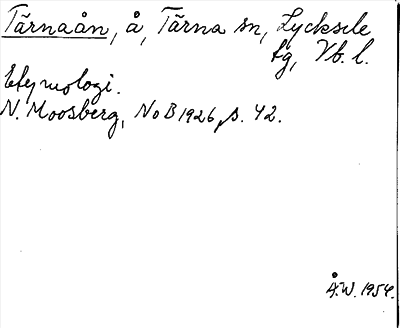 Tärnaån, å, Tärna sn, Lycksele
tg, Vb. l.
Etymologi.
N. Moosberg, NoB 1926, s. 42.
Å.W. 1954.